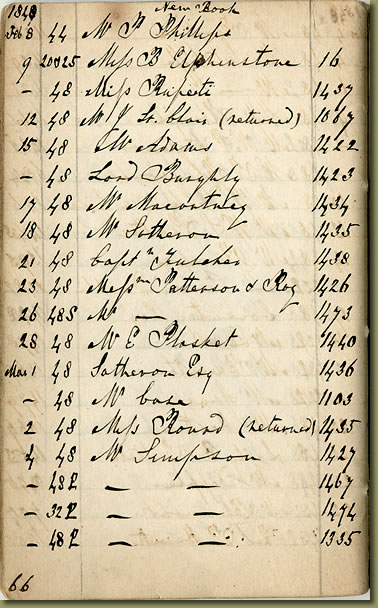 1840 New Book
Feb 8 44 Mr P Phillips
9 20&25 Miss B Elphinstone 16
- 48 Miss Rupeti 1437
12 48 Mr J St. Clair (returned) 1067
15 48 J W Adams 1422
- 48 Lord Burghly 1423
17 48 Mr Macartney 1434
18 48 Mr Sotheron 1435
21 48 Captn Fulcher 1438
23 48 Messrs Patterson & Roy 1426
26 48S Mr — 1473
28 48 Mr E Plasket 1440
Mar 1 48 Sotheron Esq 1436
- 48 Mr Case 1103
2 48 Miss Round (returned) 1435
4 48 Mr Simpson 1427
- 48P — — 1467
- 32P — — 1474
- 48P — — 1335
66